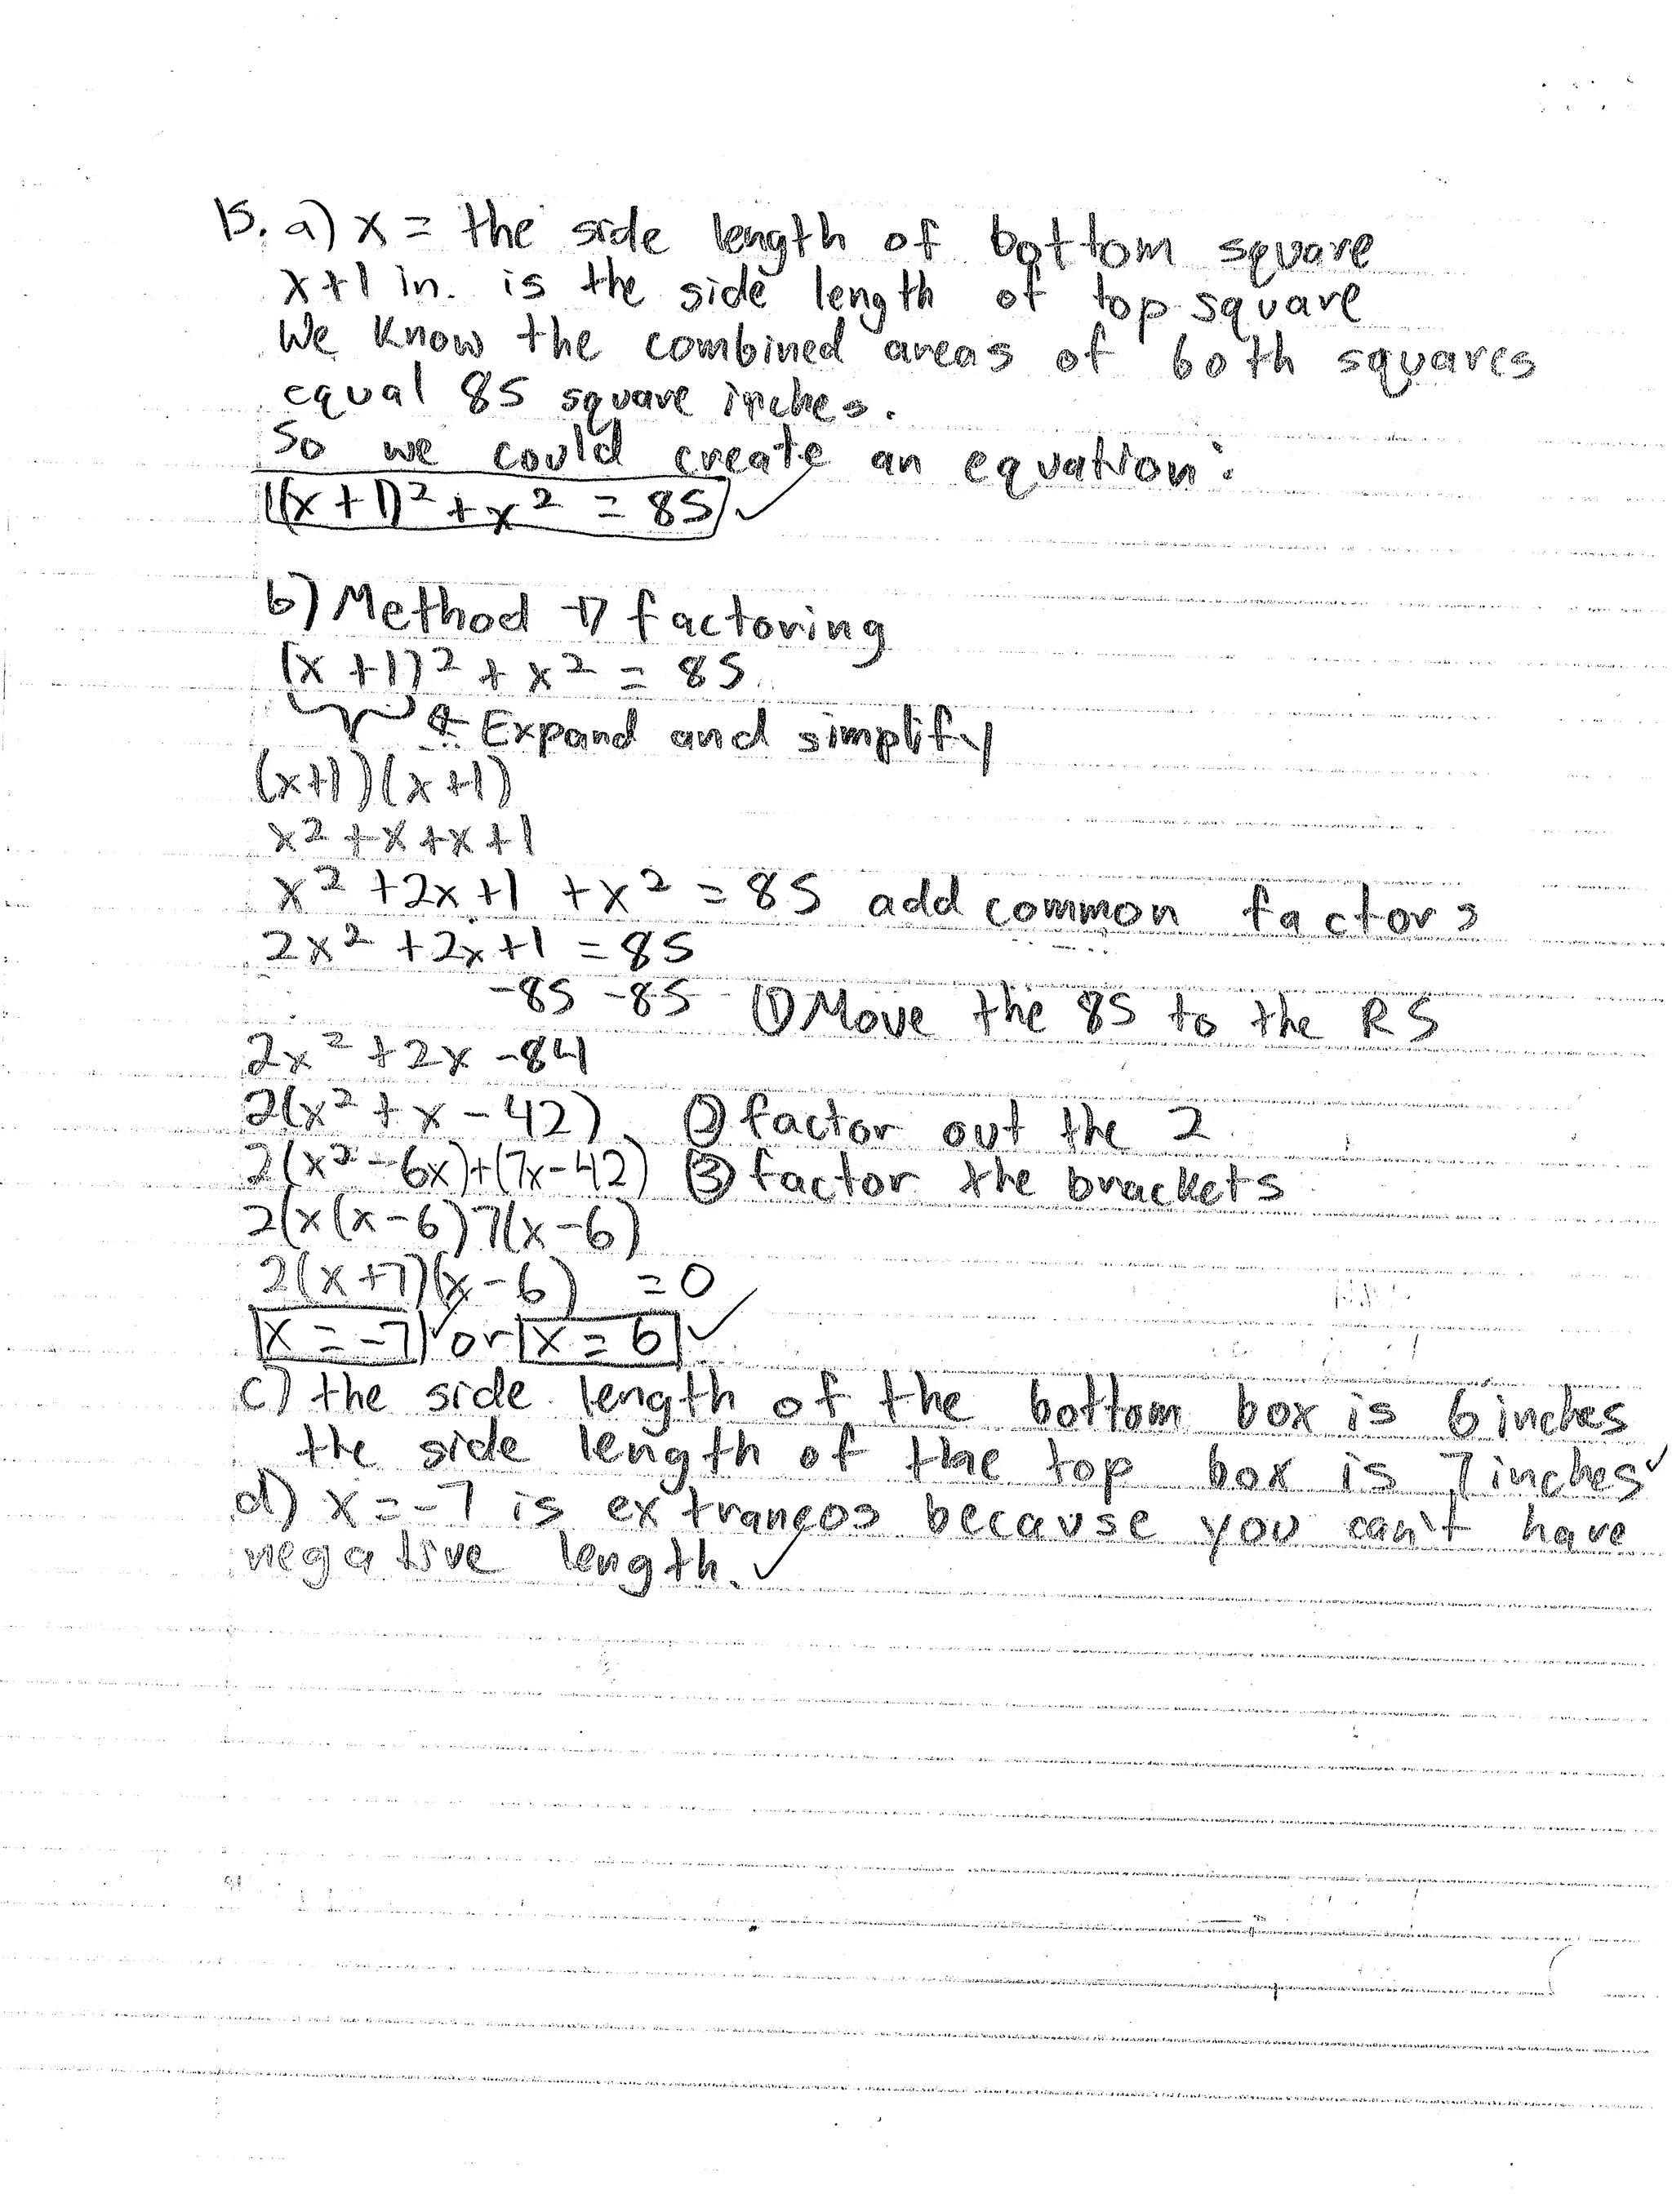 15. a) x = the side length of bottom square
x+1 in. is the side length of top square
We know the combined areas of both squares
equal 85 square inches.
So we could create an equation:
(x+1)² + x² = 85 ✓
b) Method → factoring
(x+1)² + x² = 85
← Expand and simplify
(x+1)(x+1)
x² + x + x + 1
x² + 2x + 1 + x² = 85 add common factors
2x² + 2x + 1 = 85
-85 -85 ① Move the 85 to the RS
2x² + 2x - 84
2(x² + x - 42) ② factor out the 2
2(x² - 6x) + (7x - 42) ③ factor the brackets
2(x(x-6) 7(x-6)
2(x+7)(x-6) = 0
x = -7 ✓ or x = 6 ✓
c) the side length of the bottom box is 6 inches
the side length of the top box is 7 inches ✓
d) x = -7 is extraneos because you can't have
negative length. ✓